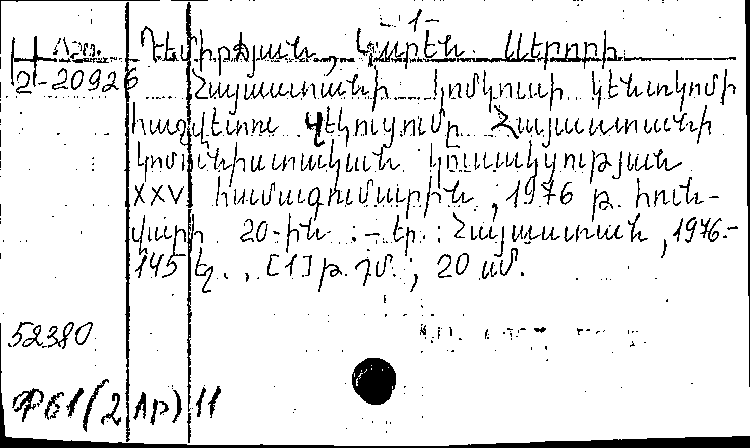 -1-
Դեմիրճյան, Կարեն Սերոբի
2-20926 Հայաստանի կոմկուսի կենտկոմի
հաշվետու զեկուցումը Հայաստանի
կոմունիստական կուսակցության
XXV համագումարին, 1976 թ. հուն-
վարի 20-ին .- Եր.: Հայաստան, 1976.-
145 էջ., [1] թ. դմ., 20 սմ.
52380
Փ61(2Ար)11